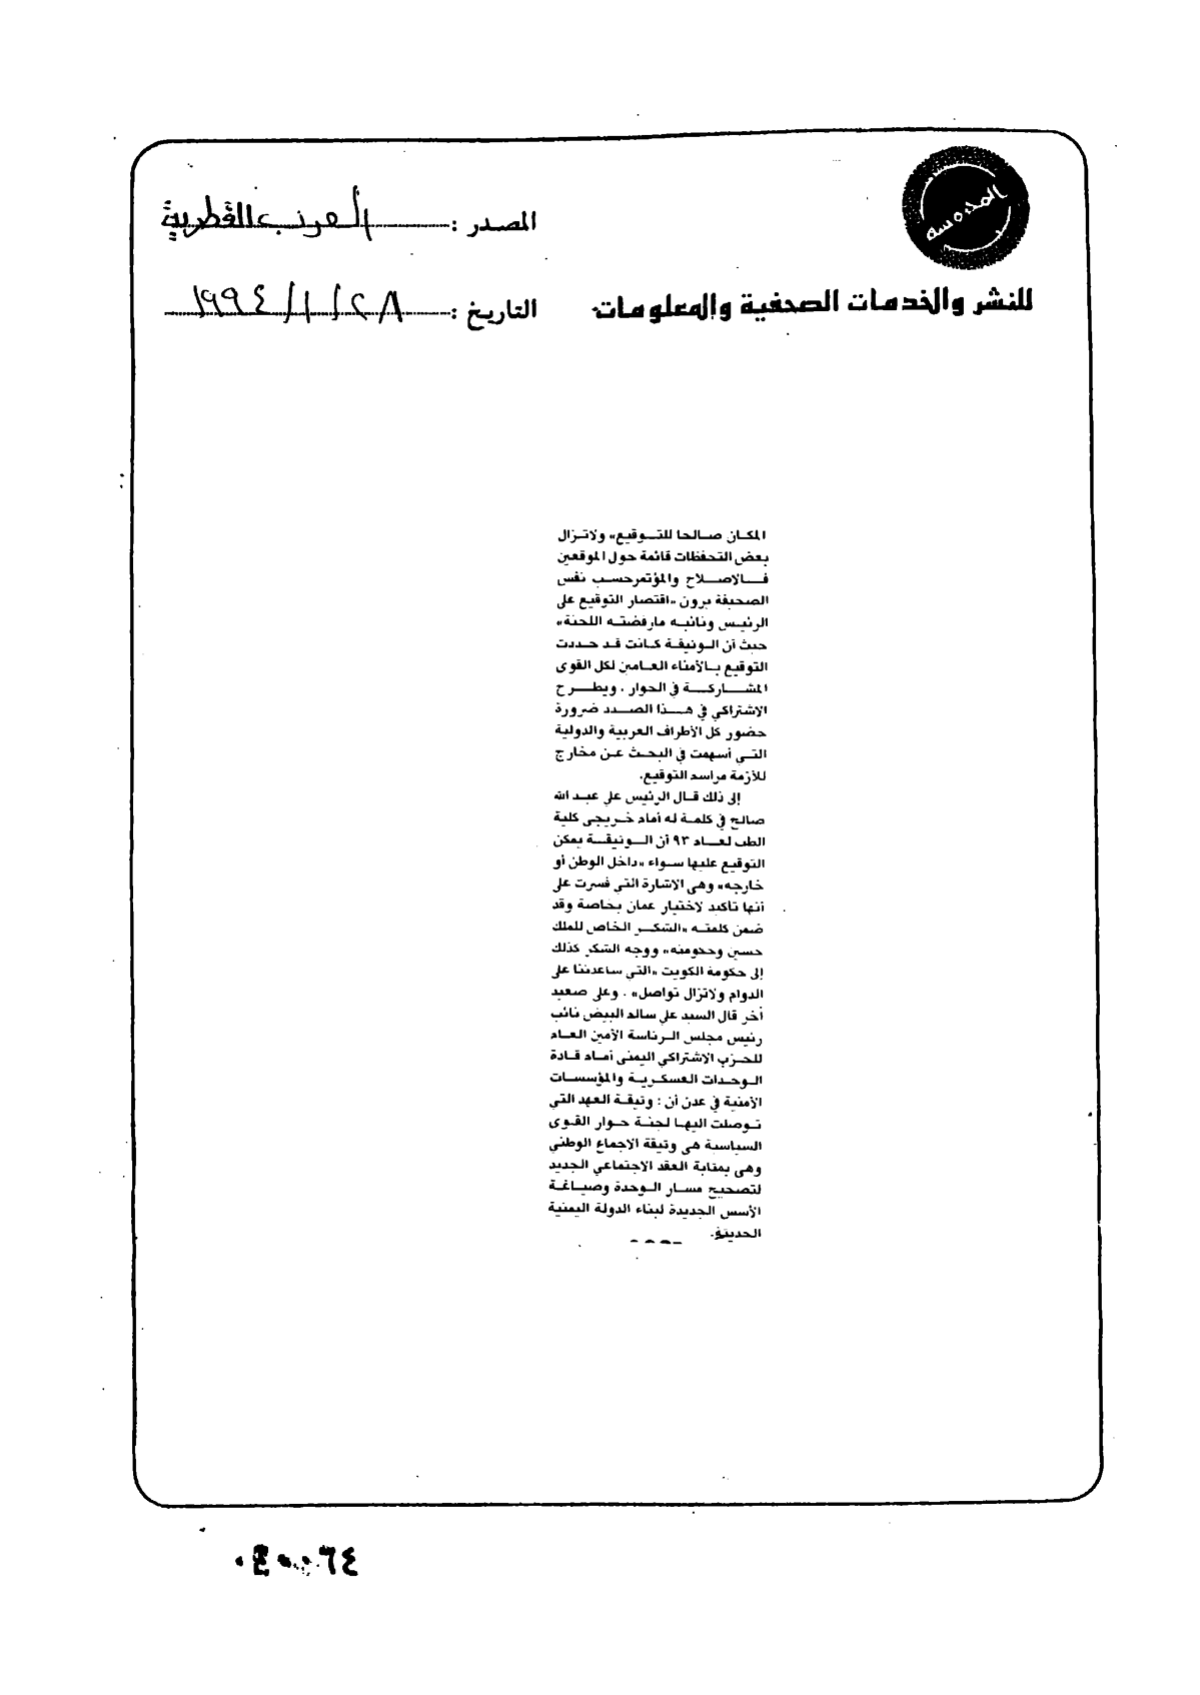 المصدر : العرب القطرية
للنشر والخدمات الصحفية والمعلومات
التاريخ : ٢٨/١/١٩٩٤
المكان صالحا للتوقيع» ولاتزال
بعض التحفظات قائمة حول الموقعين
فالاصلاح والمؤتمر حسب نفس
الصحيفة يرون «اقتصار التوقيع على
الرئيس ونائبه مارفضته اللجنة»
حيث أن الوثيقة كانت قد حددت
التوقيع بالأمناء العامين لكل القوى
المشاركة في الحوار . ويطرح
الإشتراكي في هذا الصدد ضرورة
حضور كل الأطراف العربية والدولية
التي أسهمت في البحث عن مخارج
للأزمة مراسم التوقيع.
إلى ذلك قال الرئيس علي عبد الله
صالح في كلمة له أمام خريجي كلية
الطب لعام ٩٣ أن الوثيقة يمكن
التوقيع عليها سواء «داخل الوطن أو
خارجه» وهي الاشارة التي فسرت على
أنها تأكيد لاختيار عمان بخاصة وقد
ضمن كلمته «الشكر الخاص للملك
حسين وحكومته» ووجه الشكر كذلك
إلى حكومة الكويت «التي ساعدتنا على
الدوام ولاتزال تواصل» . وعلى صعيد
أخر قال السيد علي سالم البيض نائب
رئيس مجلس الرئاسة الأمين العام
للحزب الاشتراكي اليمني أمام قادة
الوحدات العسكرية والمؤسسات
الأمنية في عدن أن : وثيقة العهد التي
توصلت اليها لجنة حوار القوى
السياسية هي وثيقة الاجماع الوطني
وهي بمثابة العقد الاجتماعي الجديد
لتصحيح مسار الوحدة وصياغة
الأسس الجديدة لبناء الدولة اليمنية
الحديثة.